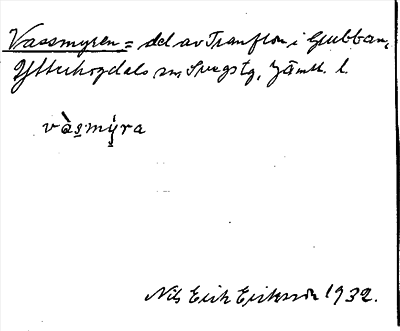 Vassmyren = del av Tranflon i Grubban,
Ytterhogdals sn Svegs tg, Jämtl. l.
vàs̱mýra
Nils Erik Eriksson 1932.